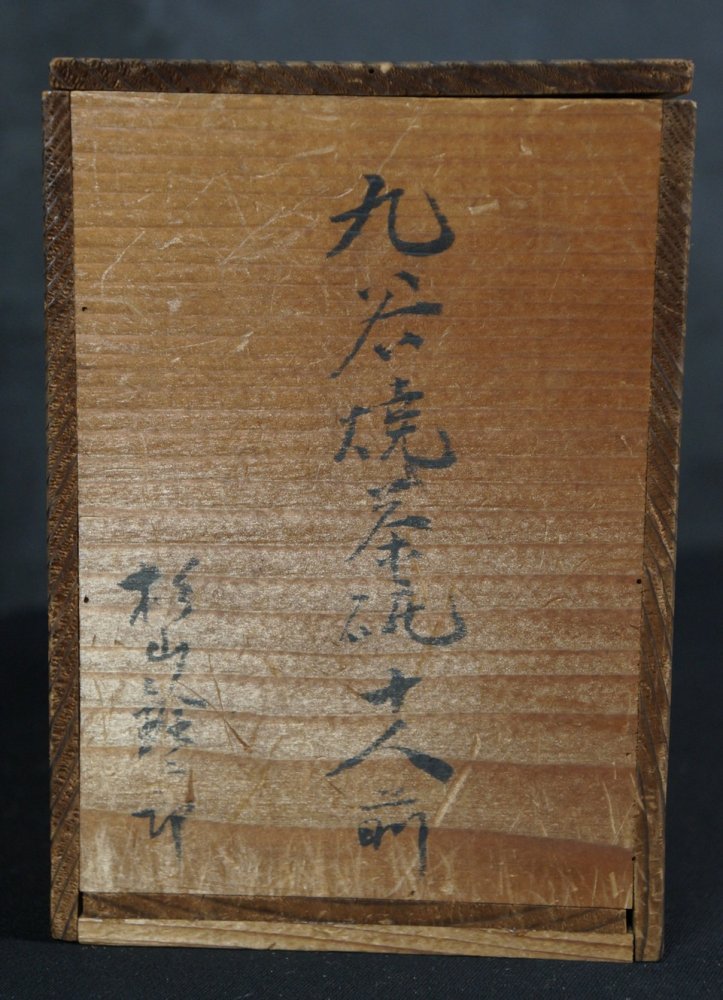 九谷燒茶碗十人前
杉山